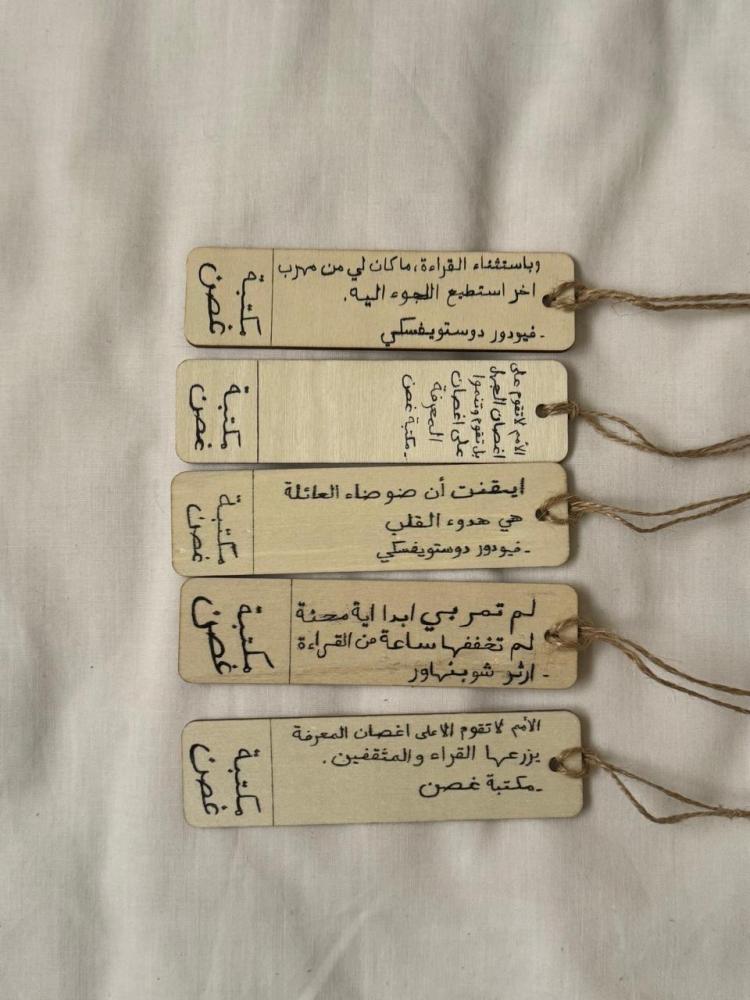 وباستثناء القراءة، ماكان لي من مهرب
اخر استطيع اللجوء اليه.
- فيودور دوستويفسكي
مكتبة
غصن
الأمم لاتقوم على
اغصان الجهل
بل تقوم وتنموا
على اغصان
المعرفة
- مكتبة غصن
مكتبة
غصن
ايقنت أن ضوضاء العائلة
هي هدوء القلب
- فيودور دوستويفسكي
مكتبة
غصن
لم تمر بي ابدا اية محنة
لم تخففها ساعة من القراءة
- ارثر شوبنهاور
مكتبة
غصن
الأمم لاتقوم الا على اغصان المعرفة
يزرعها القراء والمثقفين.
- مكتبة غصن
مكتبة
غصن